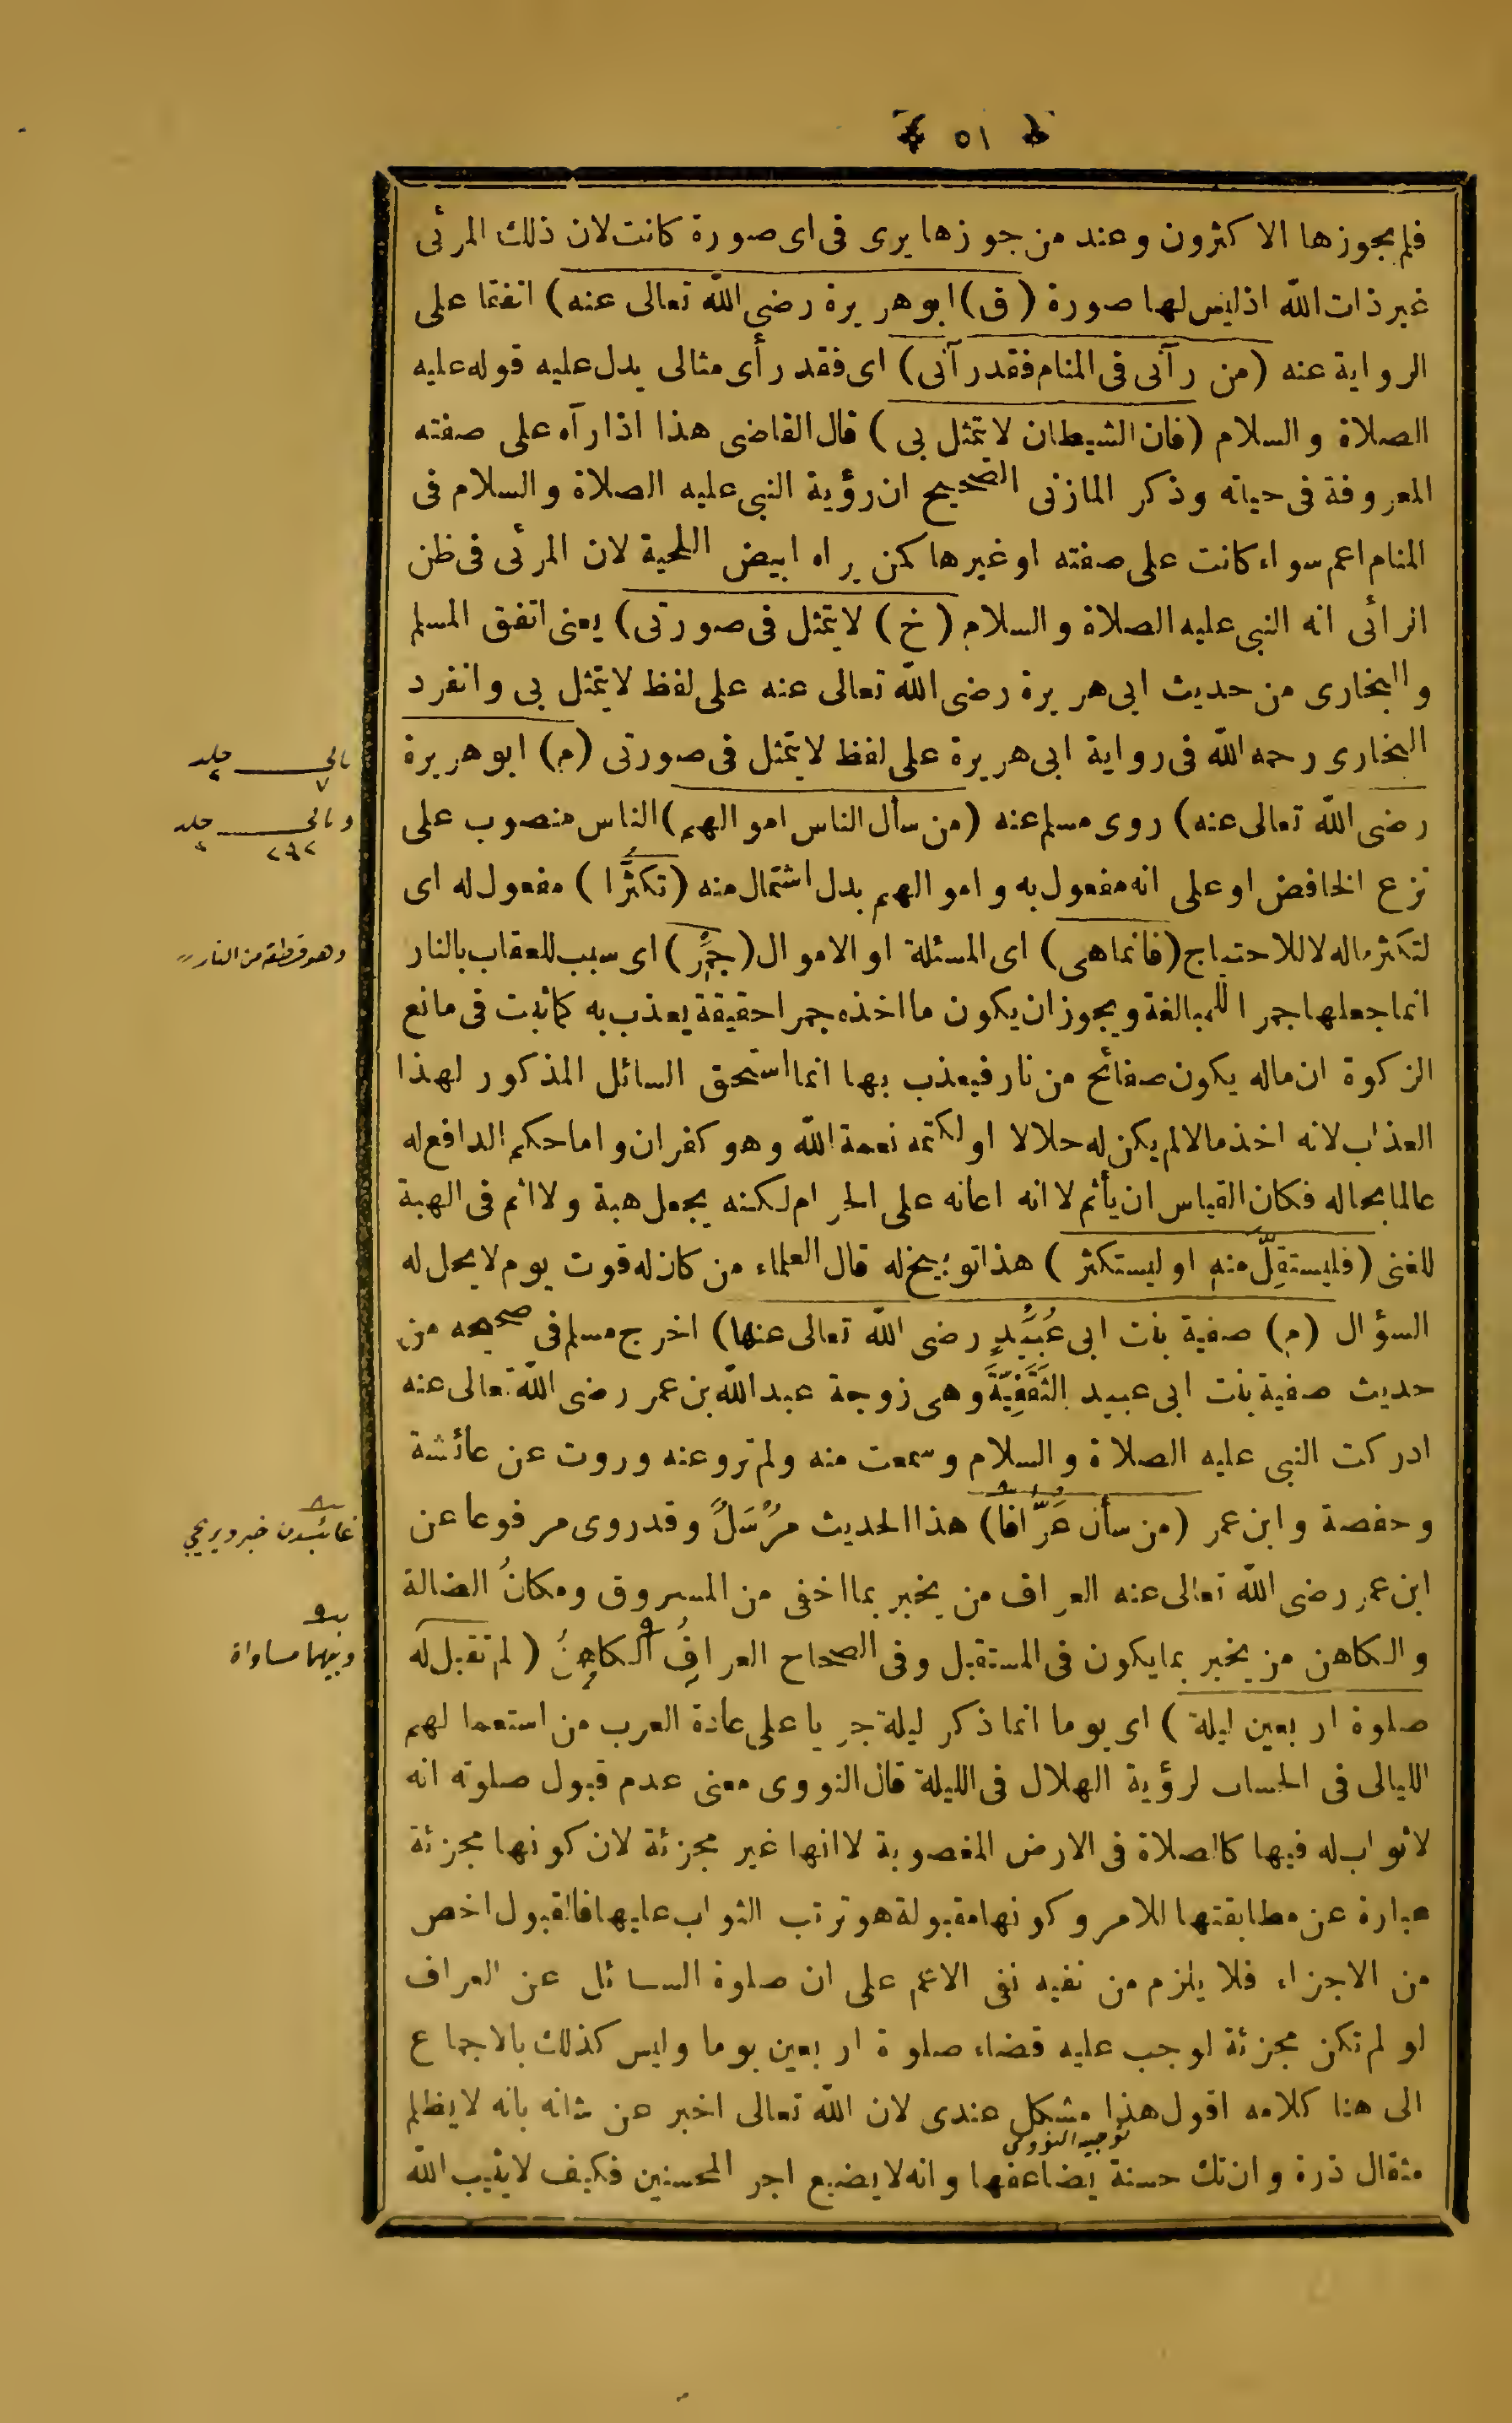 ﴿ ٥١ ﴾
فلم يجوزها الاكثرون وعند من جوزها يرى فى اى صورة كانت لان ذلك المرئى
غير ذات الله اذ ليس لها صورة (ق) ابو هريرة رضى الله تعالى عنه) اتفقا على
الرواية عنه (من رآنى فى المنام فقد رآنى) اى فقد رأى مثالى يدل عليه قوله عليه
الصلاة والسلام (فان الشيطان لا يتمثل بى) قال القاضى هذا اذا رآه على صفته
المعروفة فى حياته وذكر المازنى الصحيح ان رؤية النبى عليه الصلاة والسلام فى
المنام اعم سواء كانت على صفته او غيرها كمن يراه ابيض اللحية لان المرئى فى ظن
الرائى انه النبى عليه الصلاة والسلام (خ) لا يتمثل فى صورتى) يعنى اتفق المسلم
والبخارى من حديث ابى هريرة رضى الله تعالى عنه على لفظ لا يتمثل بى وانفرد
البخارى رحمه الله فى رواية ابى هريرة على لفظ لا يتمثل فى صورتى (م) ابو هريرة
رضى الله تعالى عنه) روى مسلم عنه (من سأل الناس اموالهم) الناس منصوب على
نزع الخافض او على انه مفعول به واموالهم بدل اشتمال منه (تكثّرا) مفعول له اى
لتكثر ماله لا للاحتياج (فانما هى) اى المسئلة او الاموال (جمر) اى سبب للعقاب بالنار
وهو قطعة من النار
انما جعلها جمرا للمبالغة ويجوز ان يكون ما اخذه جمرا حقيقة يعذب به كما ثبت فى مانع
الزكوة ان ماله يكون صفائح من نار فيعذب بها انما استحق السائل المذكور لهذا
العذاب لانه اخذ مالا لم يكن له حلالا او لكتمه نعمة الله وهو كفران واما حكم الدافع له
عالما بحاله فكان القياس ان يأثم لانه اعانه على الحرام لكنه يجعل هبة ولا اثم فى الهبة
للغنى (فليستقلّ منه او ليستكثر) هذا توبيخ له قال العلماء من كان له قوت يوم لا يحل له
السؤال (م) صفية بنت ابى عُبَيْدٍ رضى الله تعالى عنها) اخرج مسلم فى صحيحه من
حديث صفية بنت ابى عبيد الثَّقَفِيَّةَ وهى زوجة عبد الله بن عمر رضى الله تعالى عنه
ادركت النبى عليه الصلاة والسلام وسمعت منه ولم ترو عنه وروت عن عائشة
وحفصة وابن عمر (من سأل عَرَّافا) هذا الحديث مُرْسَلٌ وقد روى مرفوعا عن
غائبدن خبر ويريجى
ابن عمر رضى الله تعالى عنه العراف من يخبر بما اخفى من المسروق ومكانُ الضالة
والكاهن من يخبر بما يكون فى المستقبل وفى الصحاح العرافُ الكاهنُ (لم تقبل له
وبينهما مساواة
صلوة اربعين ليلة) اى يوما انما ذكر ليلة جريا على عادة العرب من استعمالهم
الليالى فى الحساب لرؤية الهلال فى الليلة قال النووى معنى عدم قبول صلوته انه
لا ثواب له فيها كالصلاة فى الارض المغصوبة لا انها غير مجزئة لان كونها مجزئة
عبارة عن مطابقتها للامر وكونها مقبولة هو ترتب الثواب عليها فالقبول اخص
من الاجزاء فلا يلزم من نفيه نفى الاعم على ان صلوة السائل عن العراف
لو لم تكن مجزئة لوجب عليه قضاء صلوة اربعين يوما وليس كذلك بالاجماع
الى هنا كلامه اقول هذا مشكل عندى لان الله تعالى اخبر عن شانه بانه لا يظلم
توجيه النووى
مثقال ذرة وان تك حسنة يضاعفها وانه لا يضيع اجر المحسنين فكيف لا يثيب الله